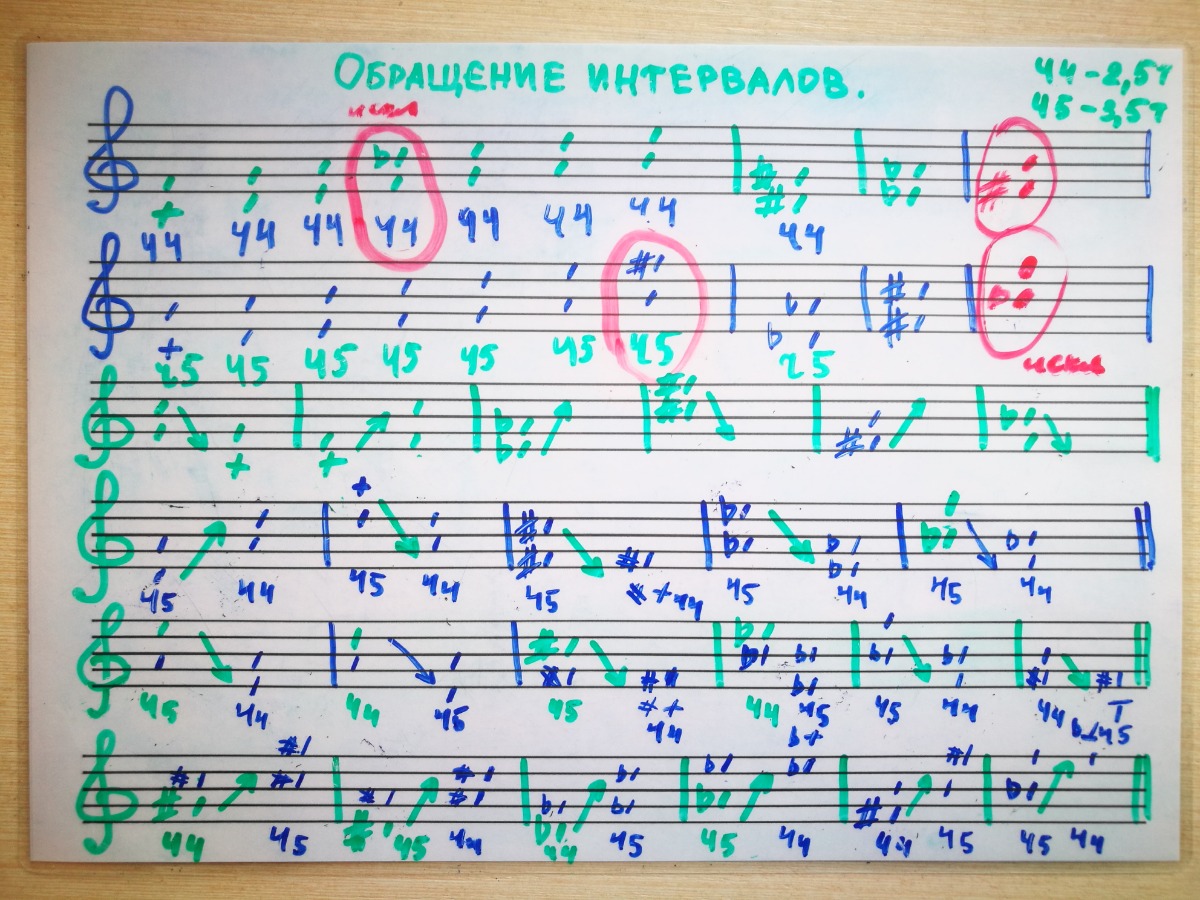 ОБРАЩЕНИЕ ИНТЕРВАЛОВ.
ч4 - 2,5т
ч5 - 3,5т
искл
ч4 ч4 ч4 ч4 ч4 ч4 ч4 ч4
ч5 ч5 ч5 ч5 ч5 ч5 ч5 ч5
искл
ч5 ч4 ч5 ч4 ч5 ч4 ч5 ч4 ч5 ч4
ч5 ч4 ч4 ч5 ч5 ч4 ч4 ч5 ч5 ч4 ч4 ч5
ч4 ч5 ч5 ч4 ч4 ч5 ч5 ч4 ч4 ч5 ч5 ч4